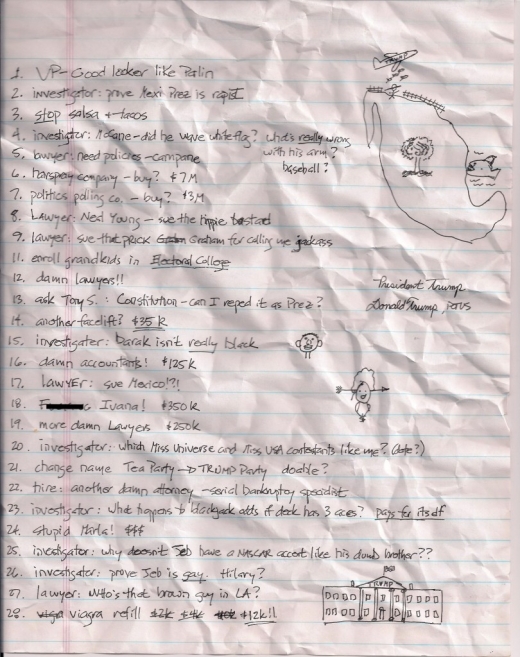 1. VP-Good looker like Palin
2. investigator: prove Mexi Prez is rapist
3. stop salsa + tacos
4. investigator: McSane - did he wave white flag? what's really wrong
with his arm?
baseball?
5. lawyer: need policies - campane
6. hairspey company - buy? $7M
7. politics polling co. - buy? $3M
8. Lawyer: Neil Young - sue the hippie bastard
9. lawyer: sue that PRICK Graham for calling me jackass
11. enroll grandkids in Electoral College
12. damn lawyers!!
13. ask Tony S.: Constitution - can I repeal it as Prez?
President Trump
Donald Trump, POTUS
14. another facelift? $35k
15. investigator: Barak isn't really black
16. damn accountants! $125k
17. lawyer: sue Mexico!?!
18. Ivana! $350k
19. more damn Lawyers $250k
20. investigator: which Miss Universe and Miss USA contestants like me? (date?)
21. change name Tea Party → TRUMP Party doable?
22. hire: another damn attorney - serial bankruptcy specialist
23. investigator: what happens to blackjack odds if deck has 3 aces? pays for itself
24. stupid Marla! $$$
25. investigator: why doesn't Jeb have a NASCAR accent like his dumb brother??
26. investigator: prove Jeb is gay. Hilary?
27. lawyer: who's that brown guy in LA?
TRUMP
28. viagra refill $2k $12k!!